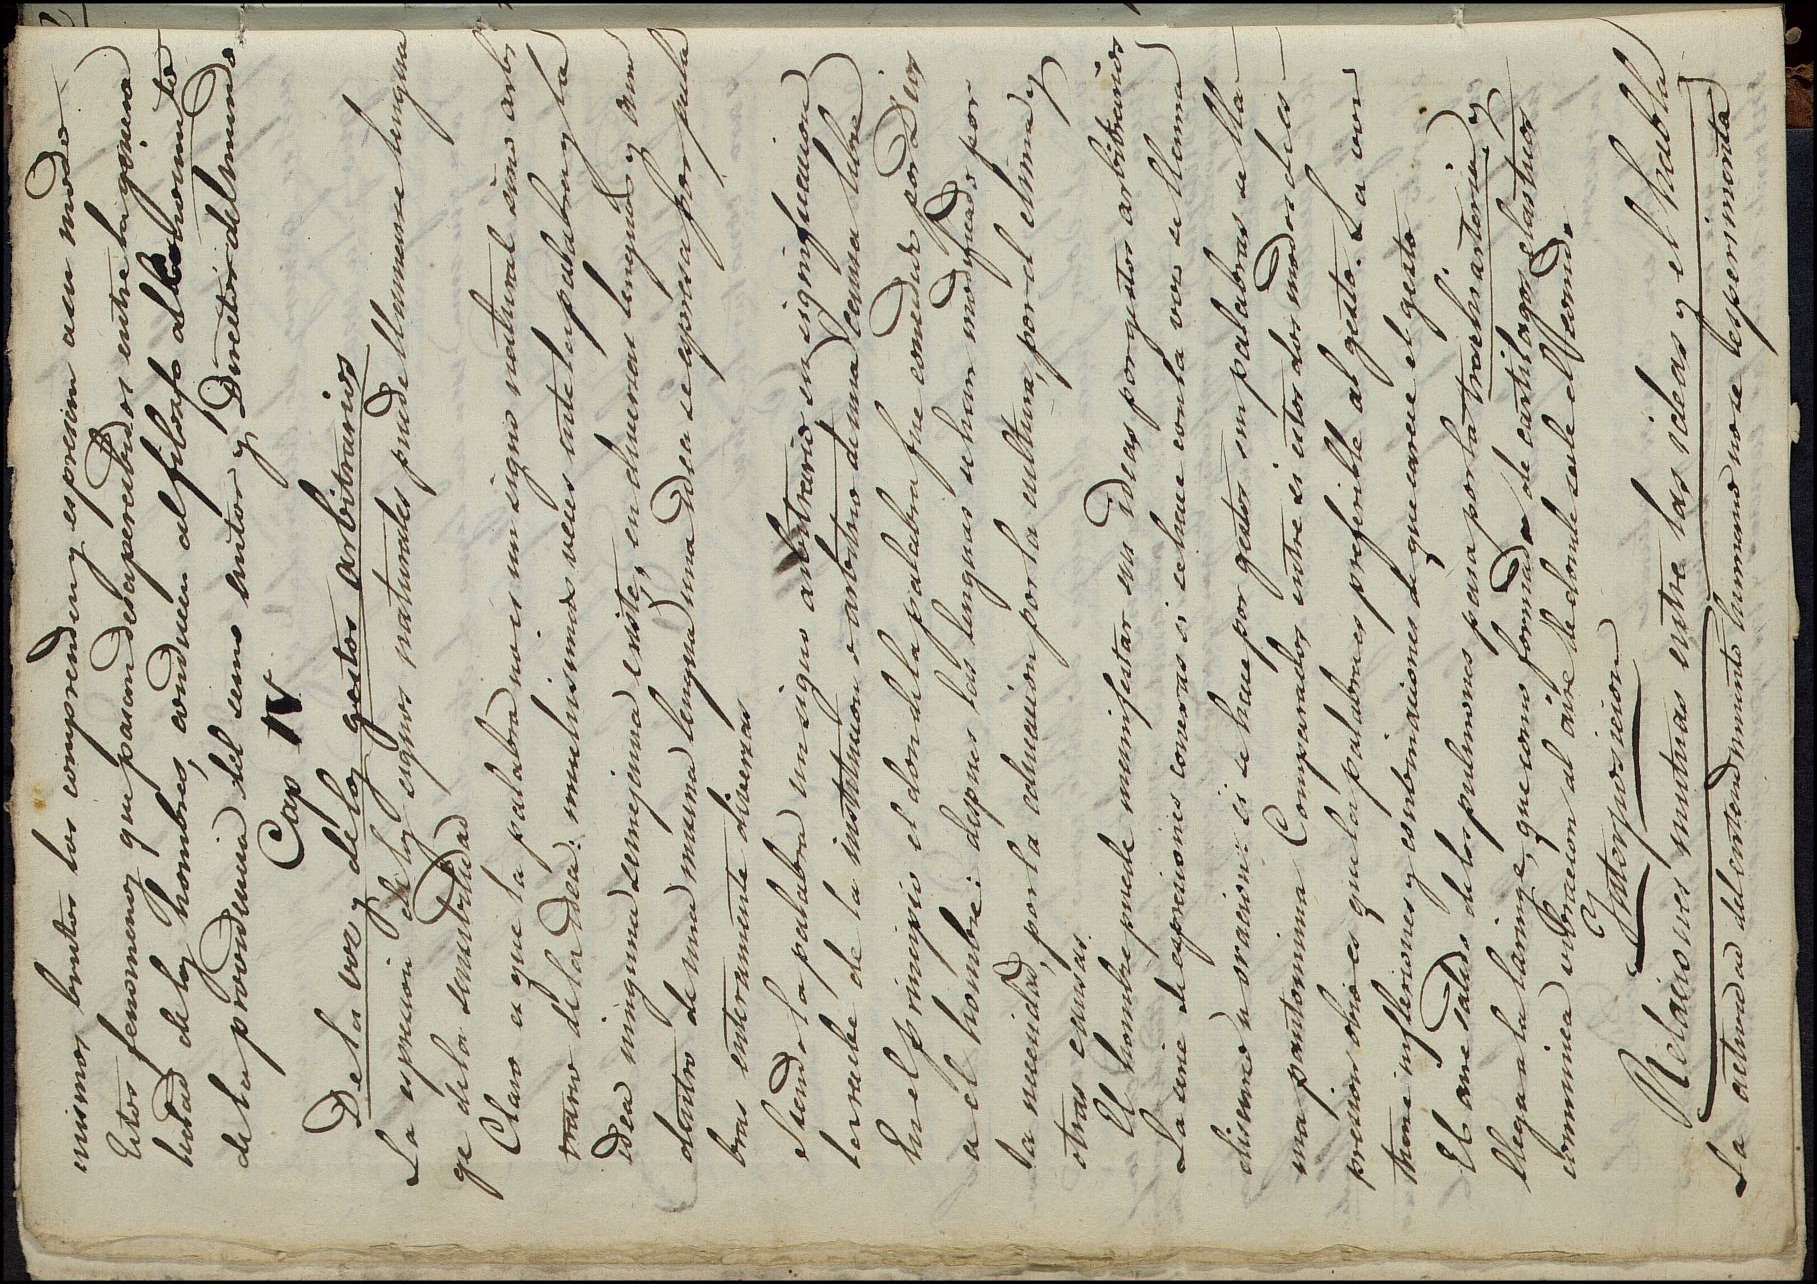 mismos brutos los comprenden y espresan a su modo
Estos fenomenos que pasan desapercibidos entre la gene
lidad de los hombres, conducen al filosofo al conocimto
de la providencia del sumo autor y Director del mundo
Cap IV
De la voz y de los gestos arbitrarios
La espresion de los signos naturales puede llamarse lengua
ge de la sensibilidad
Claro es que la palabra no es un signo natural sino arbi
trario de la idea: muchisimas veces entre la palabra y la
idea ninguna semejanza existe, en diversas lenguas y aun
dentro de una misma lengua una idea se espresa por pala
bras enteramente diversas
Siendo la palabra un signo arbitrario su significacion
depende de la institucion o arbitrio de una causa libre
En el principio el don de la palabra fue concedido por Dios
a el hombre: despues las lenguas se han modificado por
la necesidad, por la educacion por la cultura, por el clima y
otras causas.
El hombre puede manifestar sus ideas por gestos arbitrarios
La serie de espresiones conversas si se hace con la voz se llama
discurso u oracion: si se hace por gestos sin palabras se lla-
ma pantomima Comparados entre si estos dos modos de es-
presion obvio es que la palabra es preferible al gesto. La voz
tiene inflexiones y combinaciones de que carece el gesto
El aire salido de los pulmones pasa por la trachearteria y
llega a la laringe, que como formada de cartilagos elasticos
comunica vibracion al aire de donde sale el sonido.
Interposicion
Relaciones mutuas entre las ideas y el habla
La actividad del entendimiento humano no se esperimenta